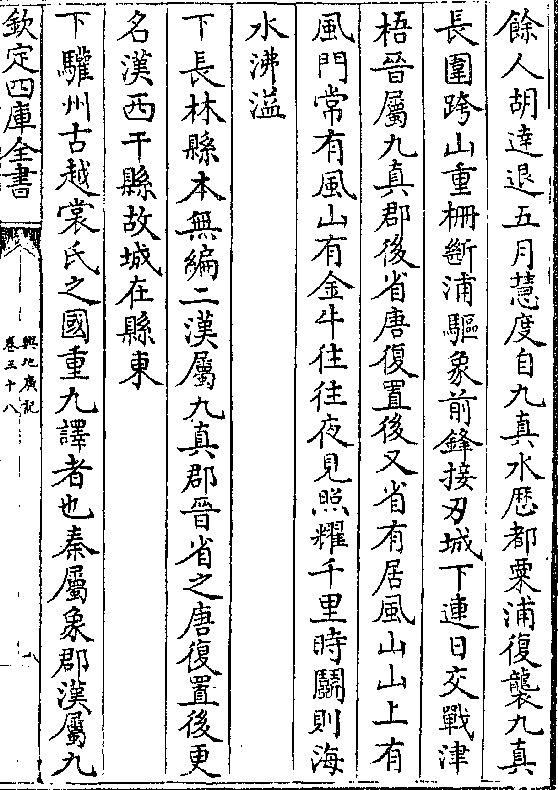 餘人胡達退五月慧度自九真水歷都粟浦復襲九真
長圍跨山重柵斷浦驅象前鋒接刃城下連日交戰津
梧晉屬九真郡後省唐復置後又省有居風山山上有
風門常有風山有金牛往往夜見照耀千里時鬭則海
水沸溢
下長林縣本無編二漢屬九真郡晉省之唐復置後更
名漢西于縣故城在縣東
下驩州古越裳氏之國重九譯者也秦屬象郡漢屬九
欽定四庫全書
輿地廣記
卷三十八